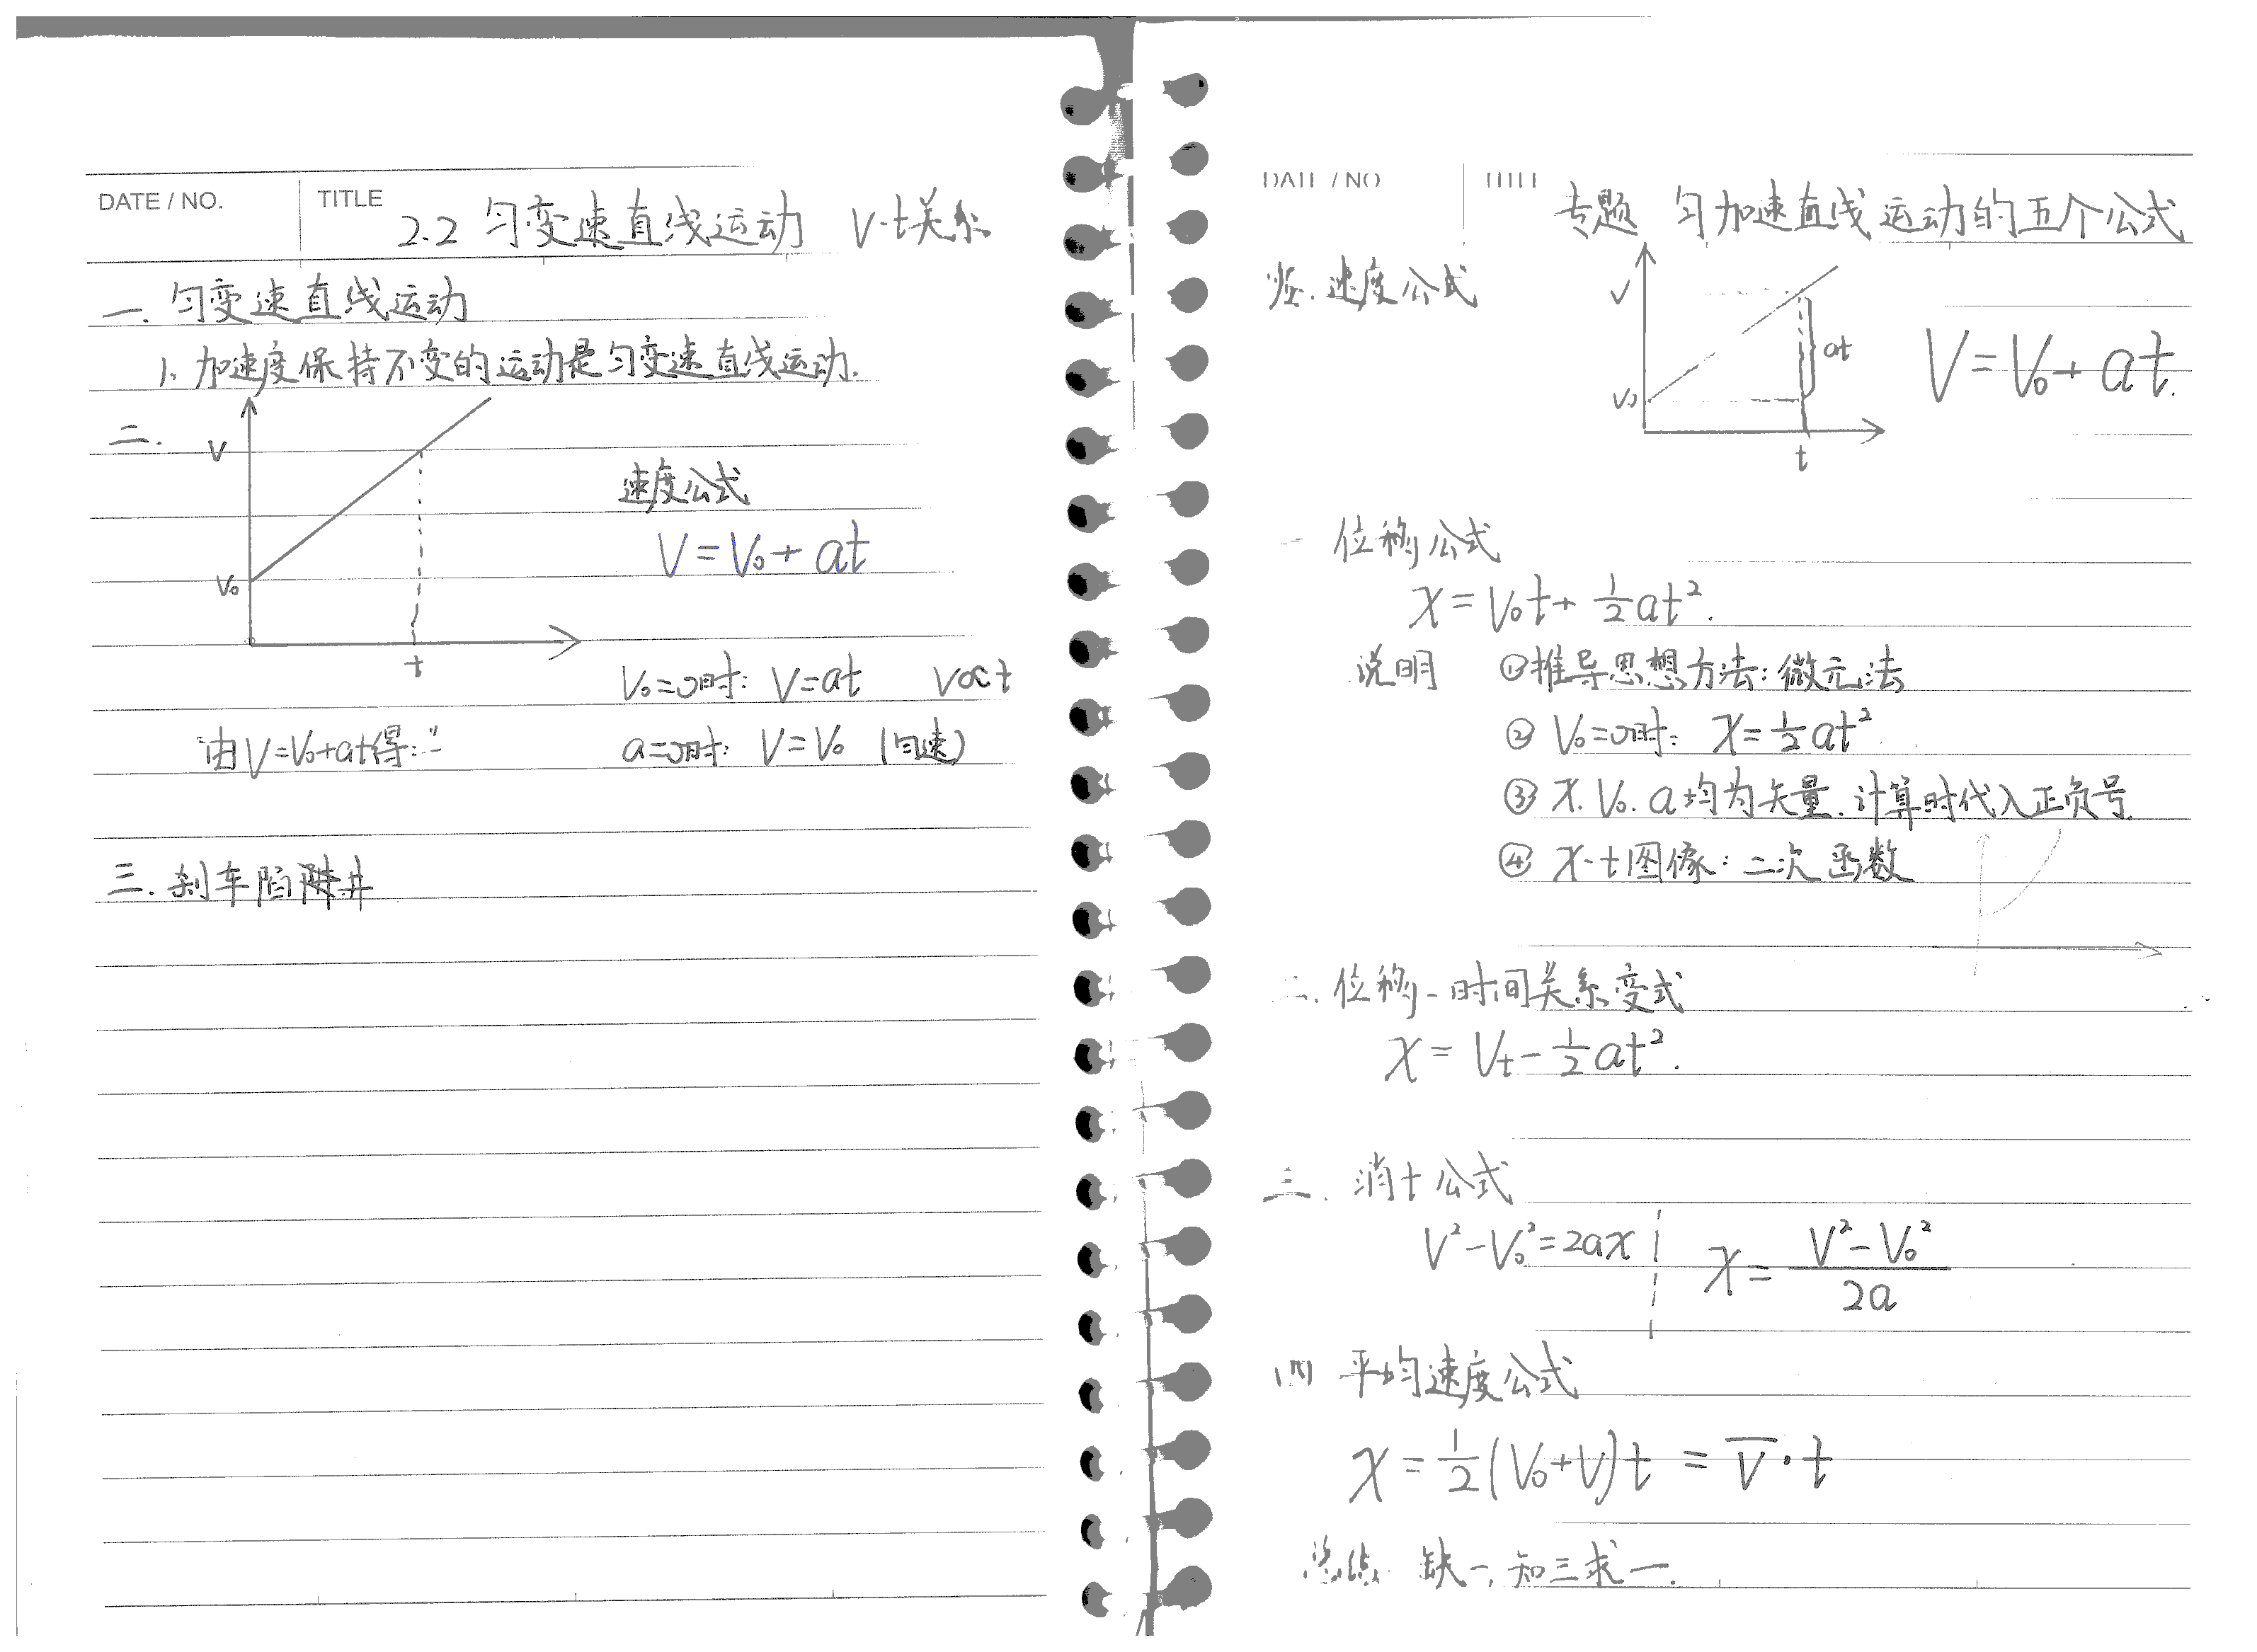 DATE / NO.
TITLE
2.2 匀变速直线运动 V-t关系
一. 匀变速直线运动
1. 加速度保持不变的运动是匀变速直线运动.
二.
V
V₀
t
速度公式
V=V₀+at
V₀=0时: V=at V∝t
"由V=V₀+at得:"
a=0时: V=V₀ (匀速)
三. 刹车陷阱
DATE / NO
TITLE
专题 匀加速直线运动的五个公式
速度公式
V
V₀
at
t
V=V₀+at.
一 位移公式
x=V₀t+½at².
说明 ①推导思想方法:微元法
② V₀=0时: x=½at²
③ x. V₀. a均为矢量.计算时代入正负号.
④ x-t图像:二次函数
二. 位移-时间关系变式
x=Vt-½at².
三. 消t公式
V²-V₀²=2ax
x=(V²-V₀²)/2a
四 平均速度公式
x=½(V₀+V)t = V̅·t
总结 缺一,知三求一.